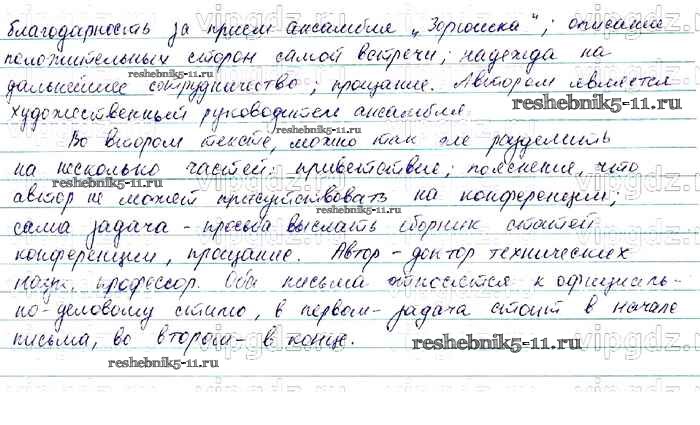 благодарность за прием ансамбля „Зорюшка“; описание
положительных сторон самой встречи; надежда на
дальнейшее сотрудничество; прощание. Автором является
reshebnik5-11.ru
художественный руководитель ансамбля.
reshebnik5-11.ru
Во втором тексте, можно так же разделить
reshebnik5-11.ru
на несколько частей: приветствие; пояснение, что
reshebnik5-11.ru
автор не может присутствовать на конференции;
reshebnik5-11.ru
сама задача - просьба выслать сборник статей
конференции, прощание. Автор - доктор технических
наук, профессор. Оба письма относятся к официаль-
но-деловому стилю, в первом - задача стоит в начале
письма, во втором - в конце.
reshebnik5-11.ru
reshebnik5-11.ru
vipgdz.ru